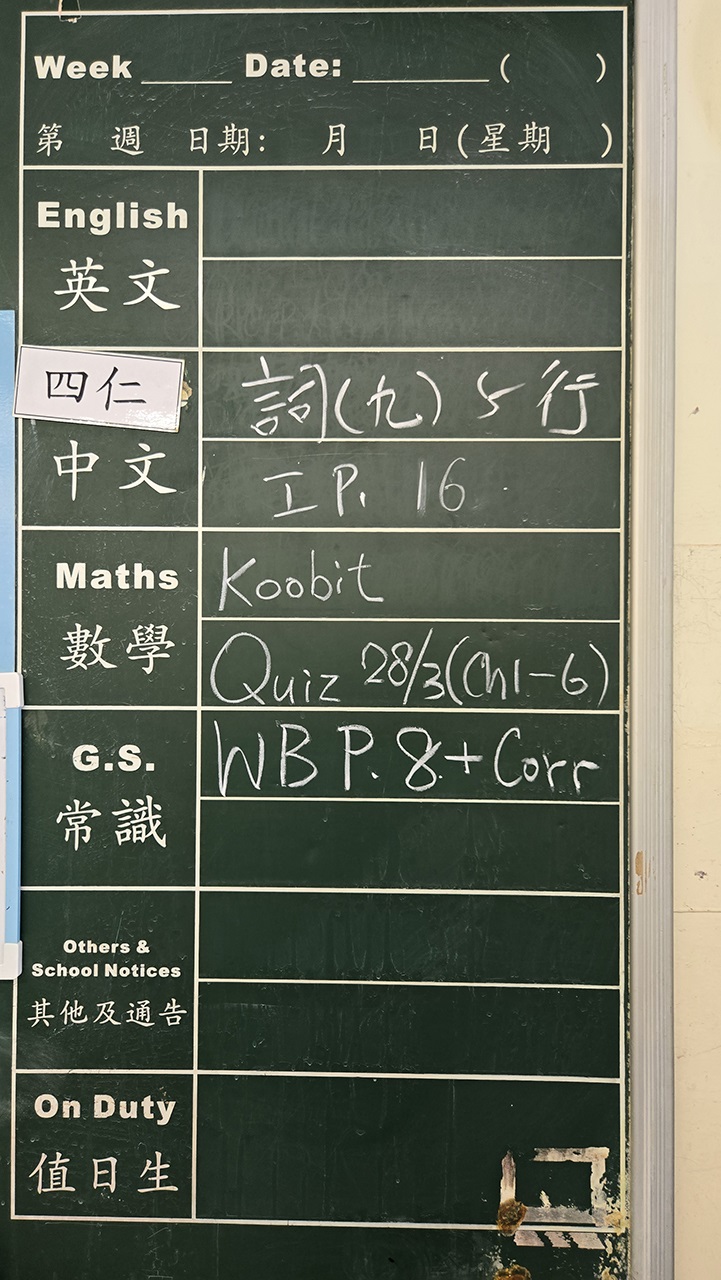 Week _____ Date: ________ ( )
第 週 日期: 月 日(星期 )
English
英文
四仁
中文
詞(九) 5行
工 P. 16
Maths
數學
Koobit
Quiz 28/3(Ch1-6)
G.S.
常識
WB P. 8 + Corr
Others &
School Notices
其他及通告
On Duty
值日生